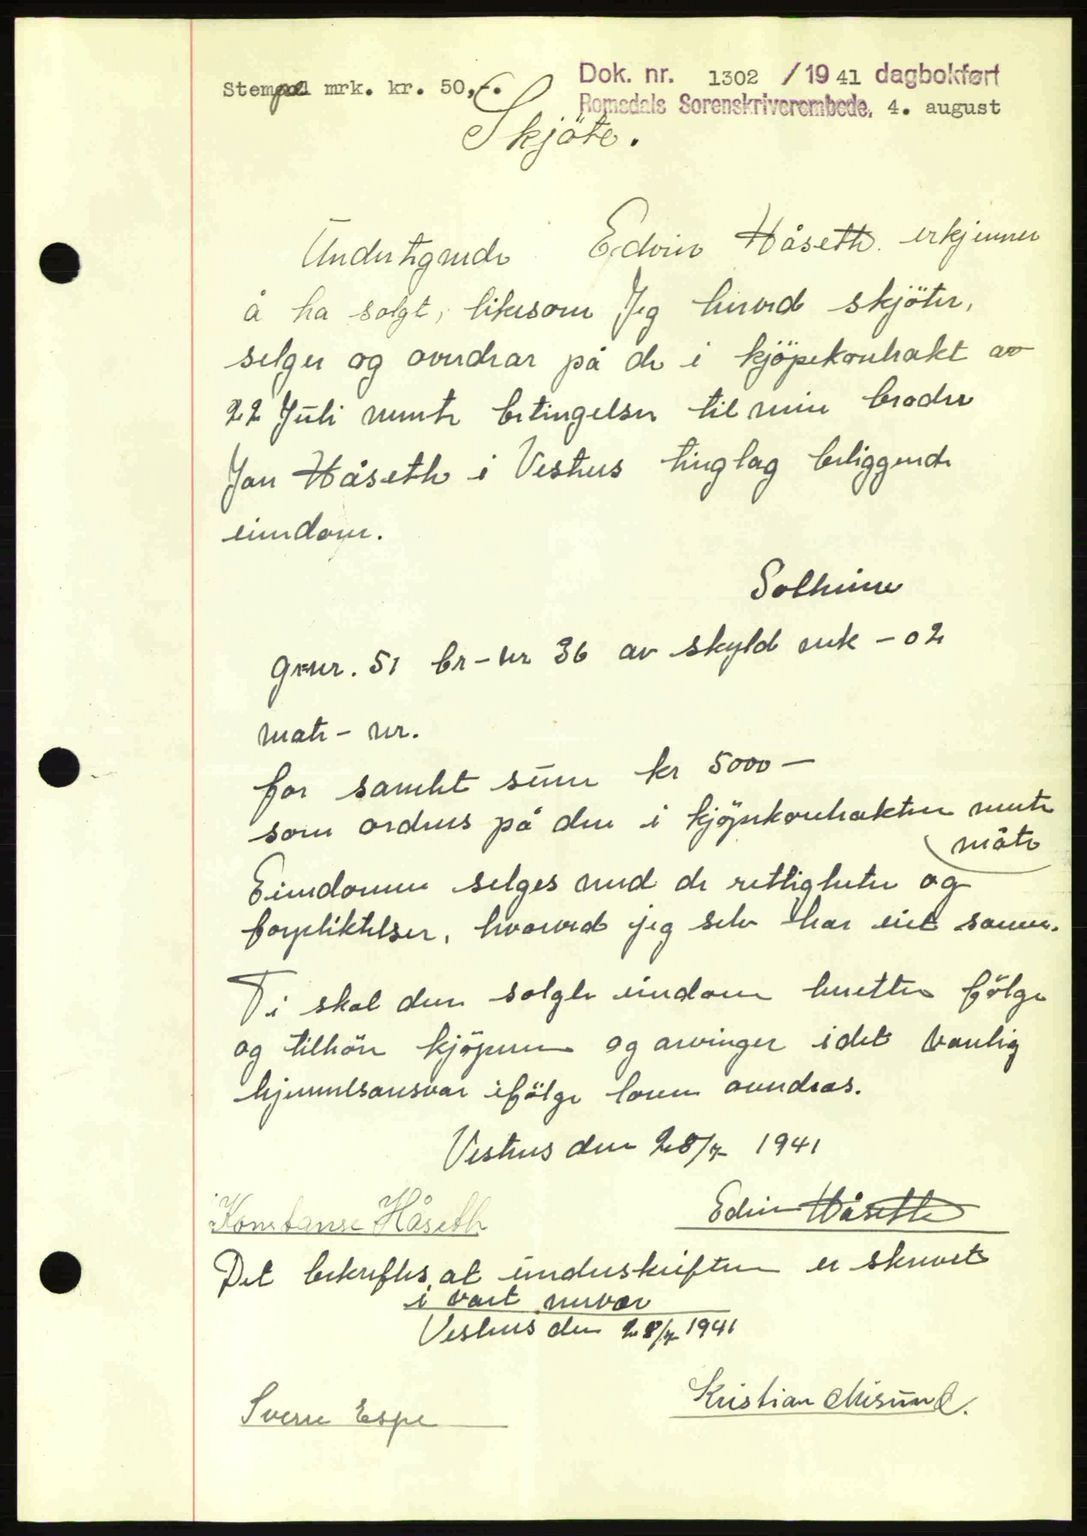 Stempel mrk. kr. 50,-.
Dok. nr. 1302 / 1941 dagbokført
Romsdals Sorenskriverembede, 4. august
Skjöte.
Undertegnede Edvin Håseth. erkjenner
å ha solgt, likesom Jeg herved skjöter,
selger og overdrar på de i kjöpekontrakt av
22 Juli nevnte betingelser til min broder
Jan Håseth i Vestnes tinglag beliggende
eiendom.
Solheim
g-nr. 51 br-nr 36 av skyld mk - 02
matr - nr.
for samlet sum kr 5000 -
som ordnes på den i kjöpekontrakten nevnte
måte
Eiendommen selges med de rettigheter og
forpliktelser, hvorved jeg selv har eiet samme.
Ti skal den solgte eiendom heretter fölge
og tilhöre kjöperen og arvinger idet vanlig
hjemmelsansvar ifölge loven overdras.
Vestnes den 28/7 1941
Konstanse Håseth Edvin Håseth
Det bekreftes, at underskriften er skrevet
i vart nærvær
Vestnes den 28/7 1941
Sverre Espe Kristian Misund.